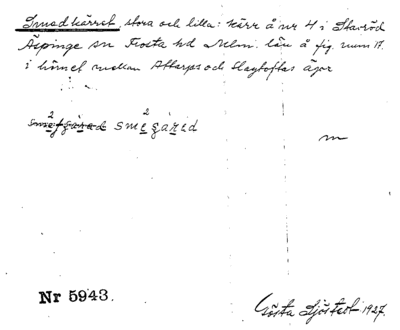 Smedkärret, stora och lilla: kärr å nr 4 i Stavröd
Äspinge sn Frosta hd Malm. län å fig. num 17.
i hörnet mellan Attarps och Slagtoftas ägor
sme²gárəd
m
Nr 5943.
Gösta Sjöstedt 1927.